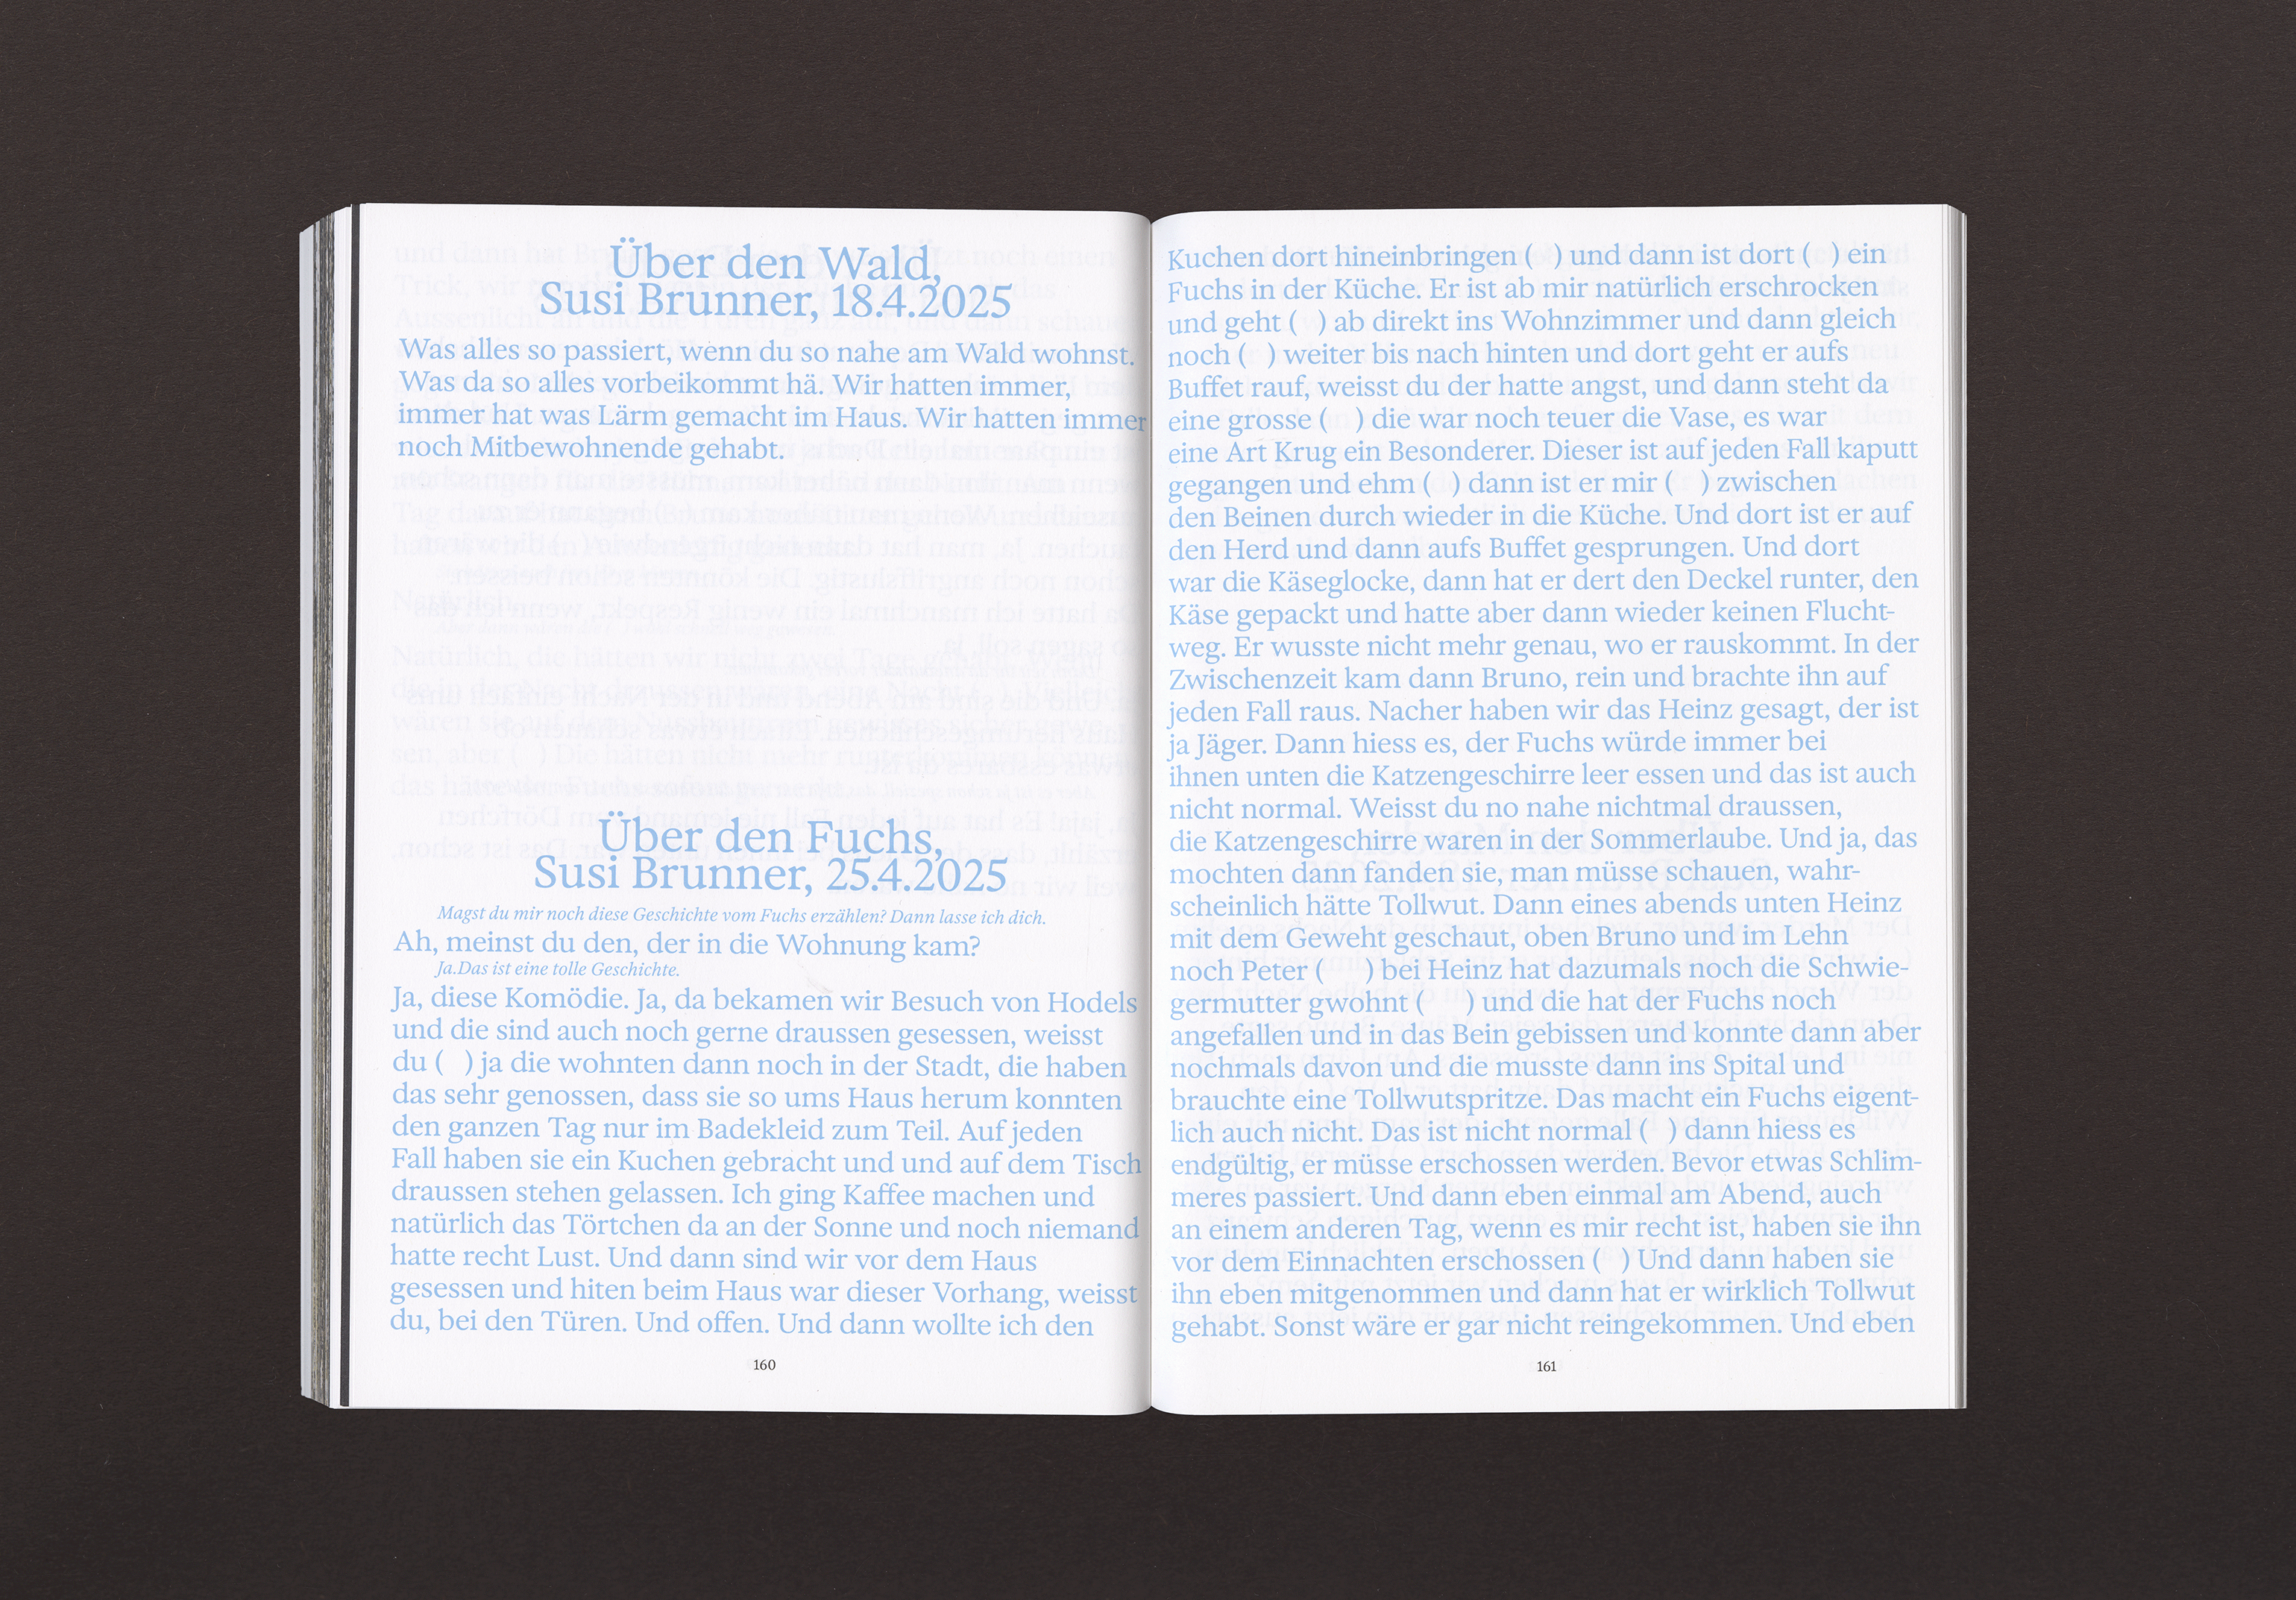 Über den Wald,
Susi Brunner, 18.4.2025
Was alles so passiert, wenn du so nahe am Wald wohnst.
Was da so alles vorbeikommt hä. Wir hatten immer,
immer hat was Lärm gemacht im Haus. Wir hatten immer
noch Mitbewohnende gehabt.
Über den Fuchs,
Susi Brunner, 25.4.2025
Magst du mir noch diese Geschichte vom Fuchs erzählen? Dann lasse ich dich.
Ah, meinst du den, der in die Wohnung kam?
Ja.Das ist eine tolle Geschichte.
Ja, diese Komödie. Ja, da bekamen wir Besuch von Hodels
und die sind auch noch gerne draussen gesessen, weisst
du (   ) ja die wohnten dann noch in der Stadt, die haben
das sehr genossen, dass sie so ums Haus herum konnten
den ganzen Tag nur im Badekleid zum Teil. Auf jeden
Fall haben sie ein Kuchen gebracht und und auf dem Tisch
draussen stehen gelassen. Ich ging Kaffee machen und
natürlich das Törtchen da an der Sonne und noch niemand
hatte recht Lust. Und dann sind wir vor dem Haus
gesessen und hiten beim Haus war dieser Vorhang, weisst
du, bei den Türen. Und offen. Und dann wollte ich den
160
Kuchen dort hineinbringen (   ) und dann ist dort (   ) ein
Fuchs in der Küche. Er ist ab mir natürlich erschrocken
und geht (   ) ab direkt ins Wohnzimmer und dann gleich
noch (   ) weiter bis nach hinten und dort geht er aufs
Buffet rauf, weisst du der hatte angst, und dann steht da
eine grosse (    ) die war noch teuer die Vase, es war
eine Art Krug ein Besonderer. Dieser ist auf jeden Fall kaputt
gegangen und ehm (   ) dann ist er mir (    ) zwischen
den Beinen durch wieder in die Küche. Und dort ist er auf
den Herd und dann aufs Buffet gesprungen. Und dort
war die Käseglocke, dann hat er dert den Deckel runter, den
Käse gepackt und hatte aber dann wieder keinen Flucht-
weg. Er wusste nicht mehr genau, wo er rauskommt. In der
Zwischenzeit kam dann Bruno, rein und brachte ihn auf
jeden Fall raus. Nacher haben wir das Heinz gesagt, der ist
ja Jäger. Dann hiess es, der Fuchs würde immer bei
ihnen unten die Katzengeschirre leer essen und das ist auch
nicht normal. Weisst du no nahe nichtmal draussen,
die Katzengeschirre waren in der Sommerlaube. Und ja, das
mochten dann fanden sie, man müsse schauen, wahr-
scheinlich hätte Tollwut. Dann eines abends unten Heinz
mit dem Geweht geschaut, oben Bruno und im Lehn
noch Peter (     ) bei Heinz hat dazumals noch die Schwie-
germutter gwohnt (     ) und die hat der Fuchs noch
angefallen und in das Bein gebissen und konnte dann aber
nochmals davon und die musste dann ins Spital und
brauchte eine Tollwutspritze. Das macht ein Fuchs eigent-
lich auch nicht. Das ist nicht normal (   ) dann hiess es
endgültig, er müsse erschossen werden. Bevor etwas Schlim-
meres passiert. Und dann eben einmal am Abend, auch
an einem anderen Tag, wenn es mir recht ist, haben sie ihn
vor dem Einnachten erschossen (   ) Und dann haben sie
ihn eben mitgenommen und dann hat er wirklich Tollwut
gehabt. Sonst wäre er gar nicht reingekommen. Und eben
161